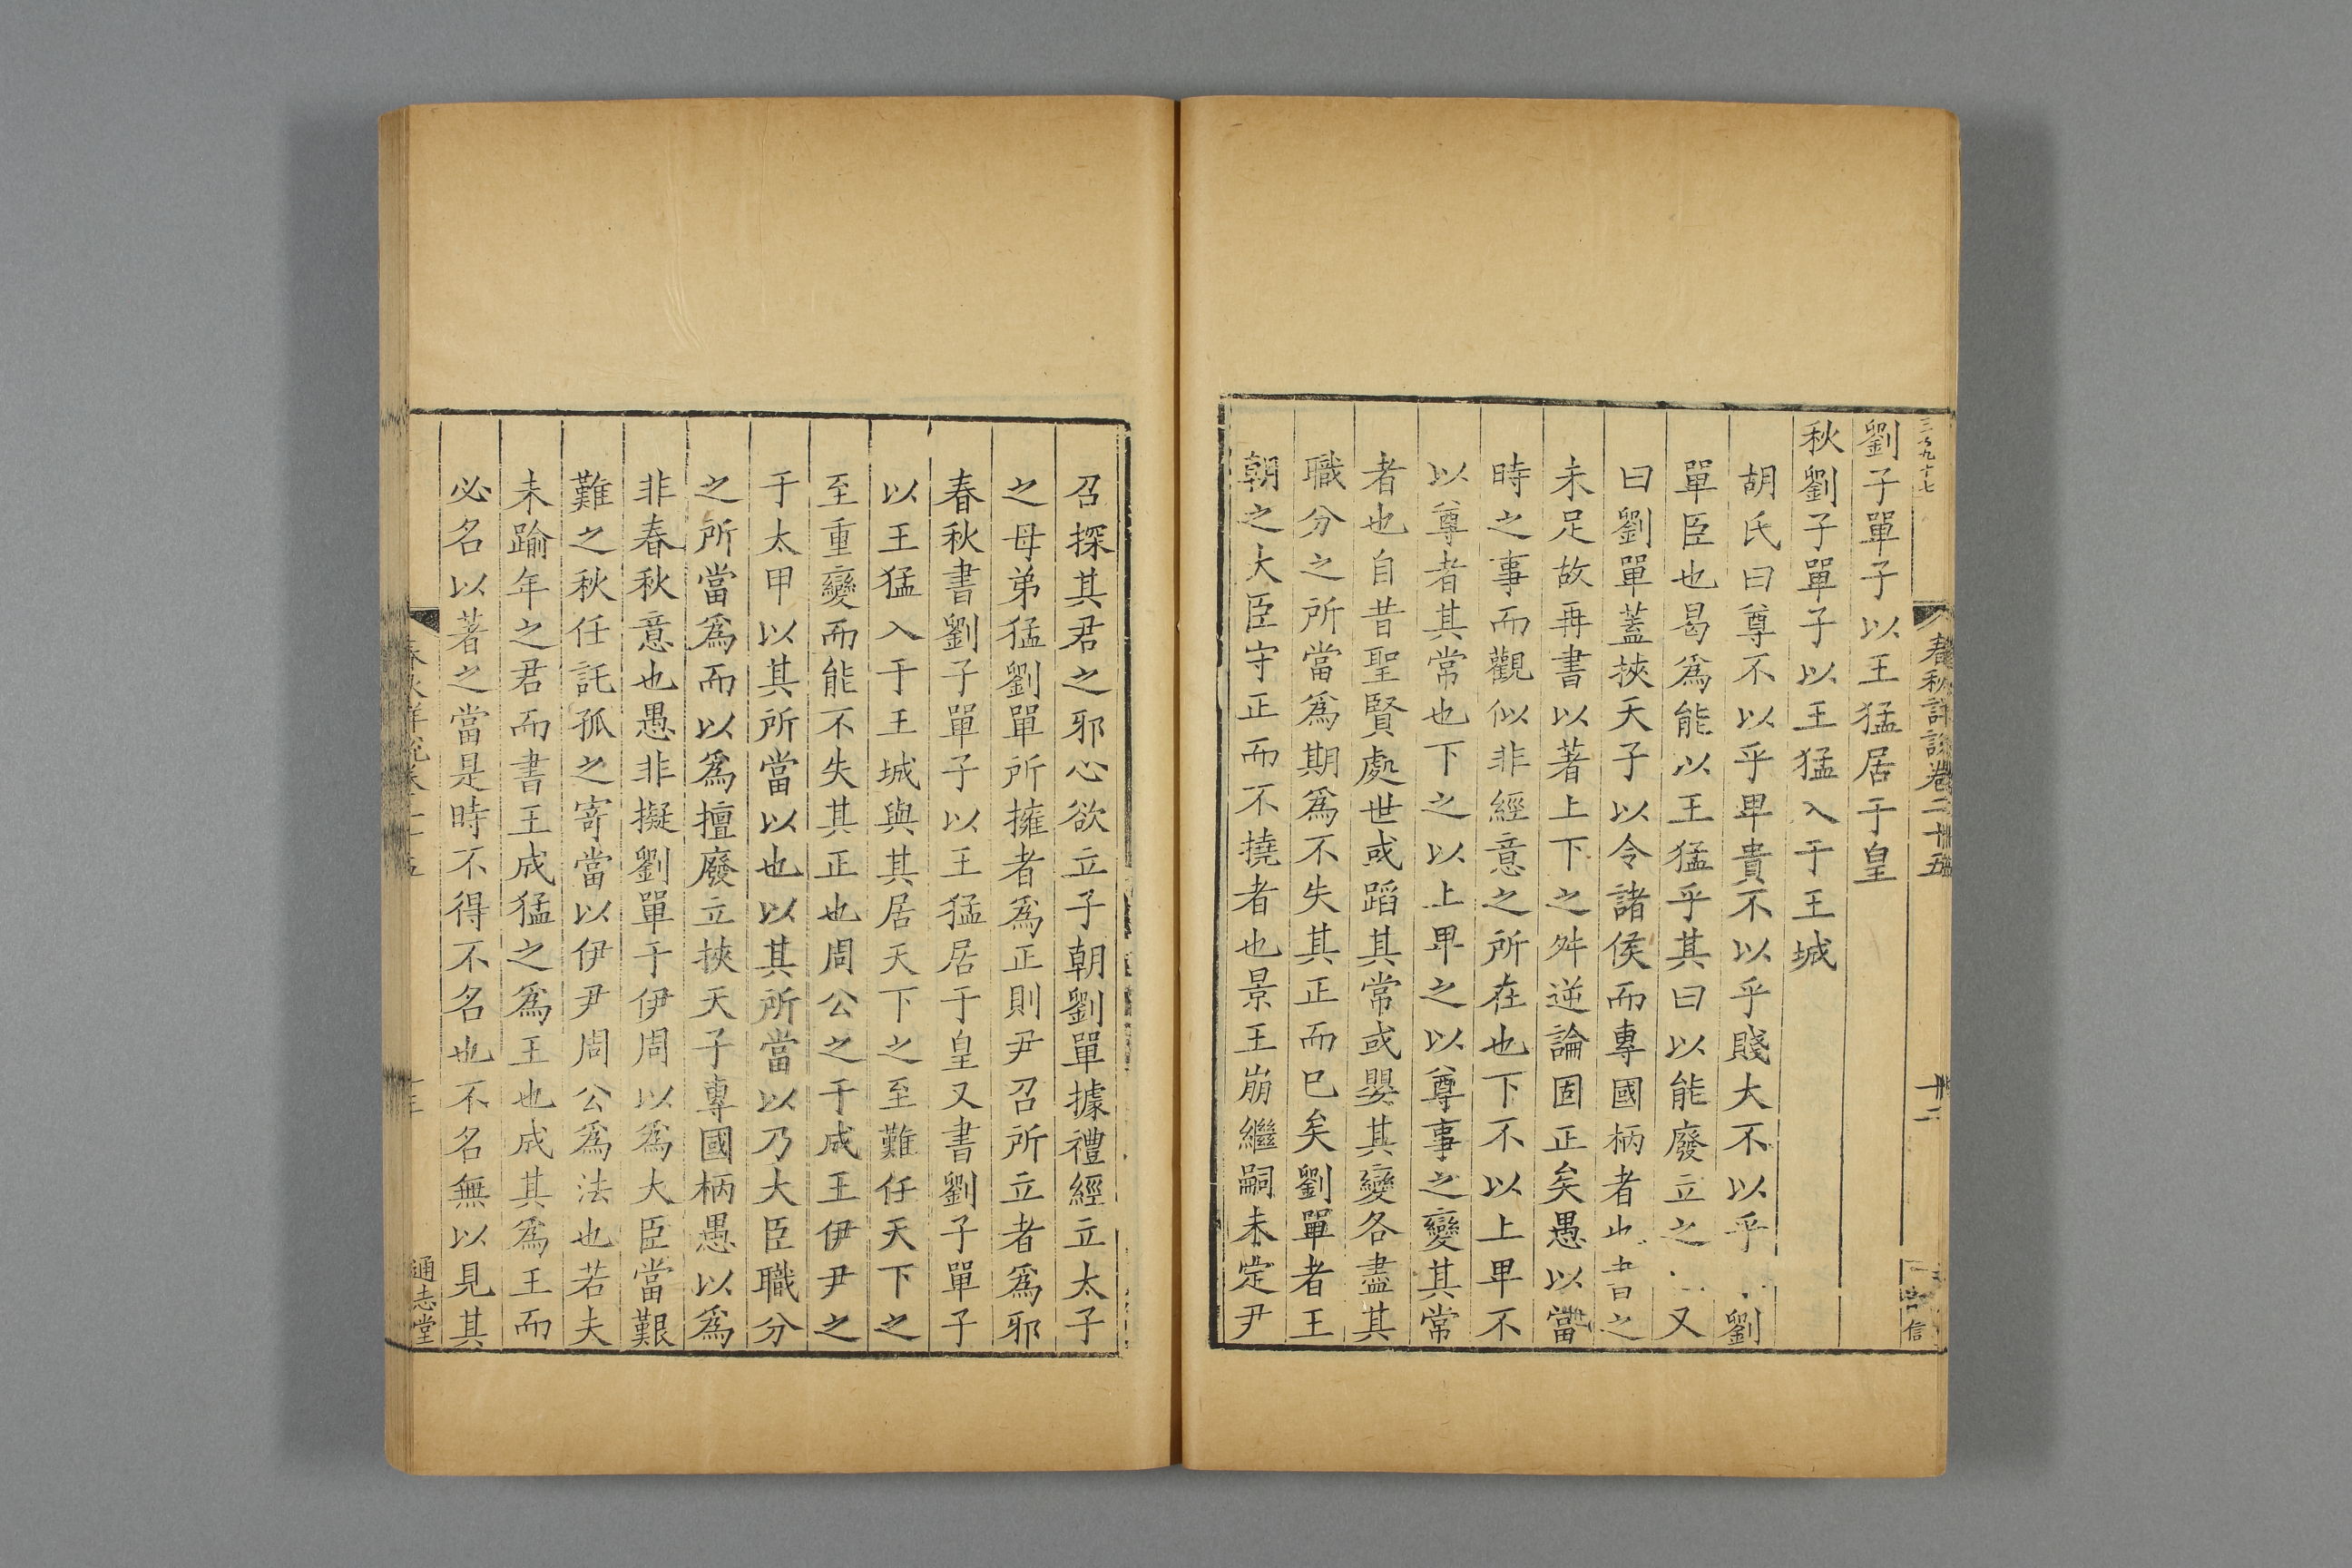 春秋詳說卷二十五
十二
信
劉子單子以王猛居于皇
秋劉子單子以王猛入于王城
胡氏曰尊不以乎卑貴不以乎賤大不以乎 劉
單臣也曷爲能以王猛乎其曰以能廢立之 又
曰劉單蓋挾天子以令諸侯而專國柄者也書之
未足故再書以著上下之舛逆論固正矣愚以當
時之事而觀似非經意之所在也下不以上卑不
以尊者其常也下之以上卑之以尊事之變其常
者也自昔聖賢處世或蹈其常或嬰其變各盡其
職分之所當爲期爲不失其正而已矣劉單者王
朝之大臣守正而不撓者也景王崩繼嗣未定尹
召探其君之邪心欲立子朝劉單據禮經立太子
之母弟猛劉單所擁者爲正則尹召所立者爲邪
春秋書劉子單子以王猛居于皇又書劉子單子
以王猛入于王城與其居天下之至難任天下之
至重變而能不失其正也周公之于成王伊尹之
于太甲以其所當以也以其所當以乃大臣職分
之所當爲而以爲擅廢立挾天子專國柄愚以爲
非春秋意也愚非擬劉單于伊周以爲大臣當艱
難之秋任託孤之寄當以伊尹周公爲法也若夫
未踰年之君而書王成猛之爲王也成其爲王而
必名以著之當是時不得不名也不名無以見其
通志堂